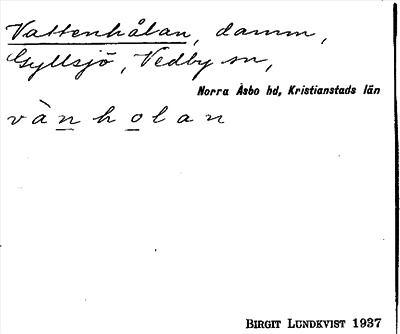 Vattenhålan, damm,
Gyllsjö, Vedby sn,
Norra Åsbo hd, Kristianstads län
vànholan
BIRGIT LUNDKVIST 1937